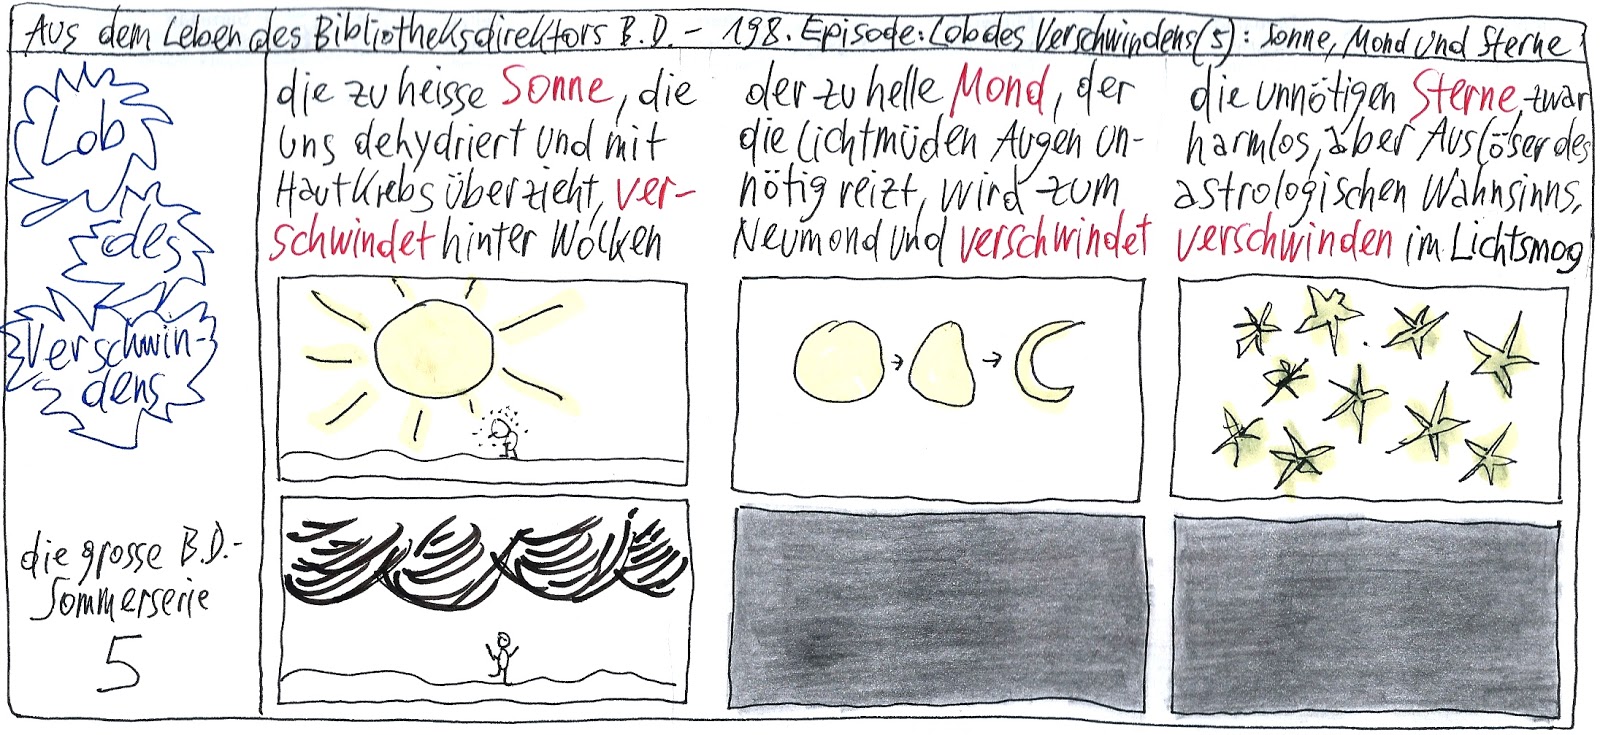 Aus dem Leben des Bibliotheksdirektors B.D. - 198. Episode: Lob des Verschwindens (5): Sonne, Mond und Sterne
Lob
des
Verschwin-
dens
die grosse B.D.-
Sommerserie
5
die zu heisse Sonne, die
uns dehydriert und mit
Hautkrebs überzieht, ver-
schwindet hinter Wolken
der zu helle Mond, der
die lichtmüden Augen un-
nötig reizt, wird zum
Neumond und verschwindet
die unnötigen Sterne, zwar
harmlos, aber Auslöser des
astrologischen Wahnsinns,
verschwinden im Lichtsmog